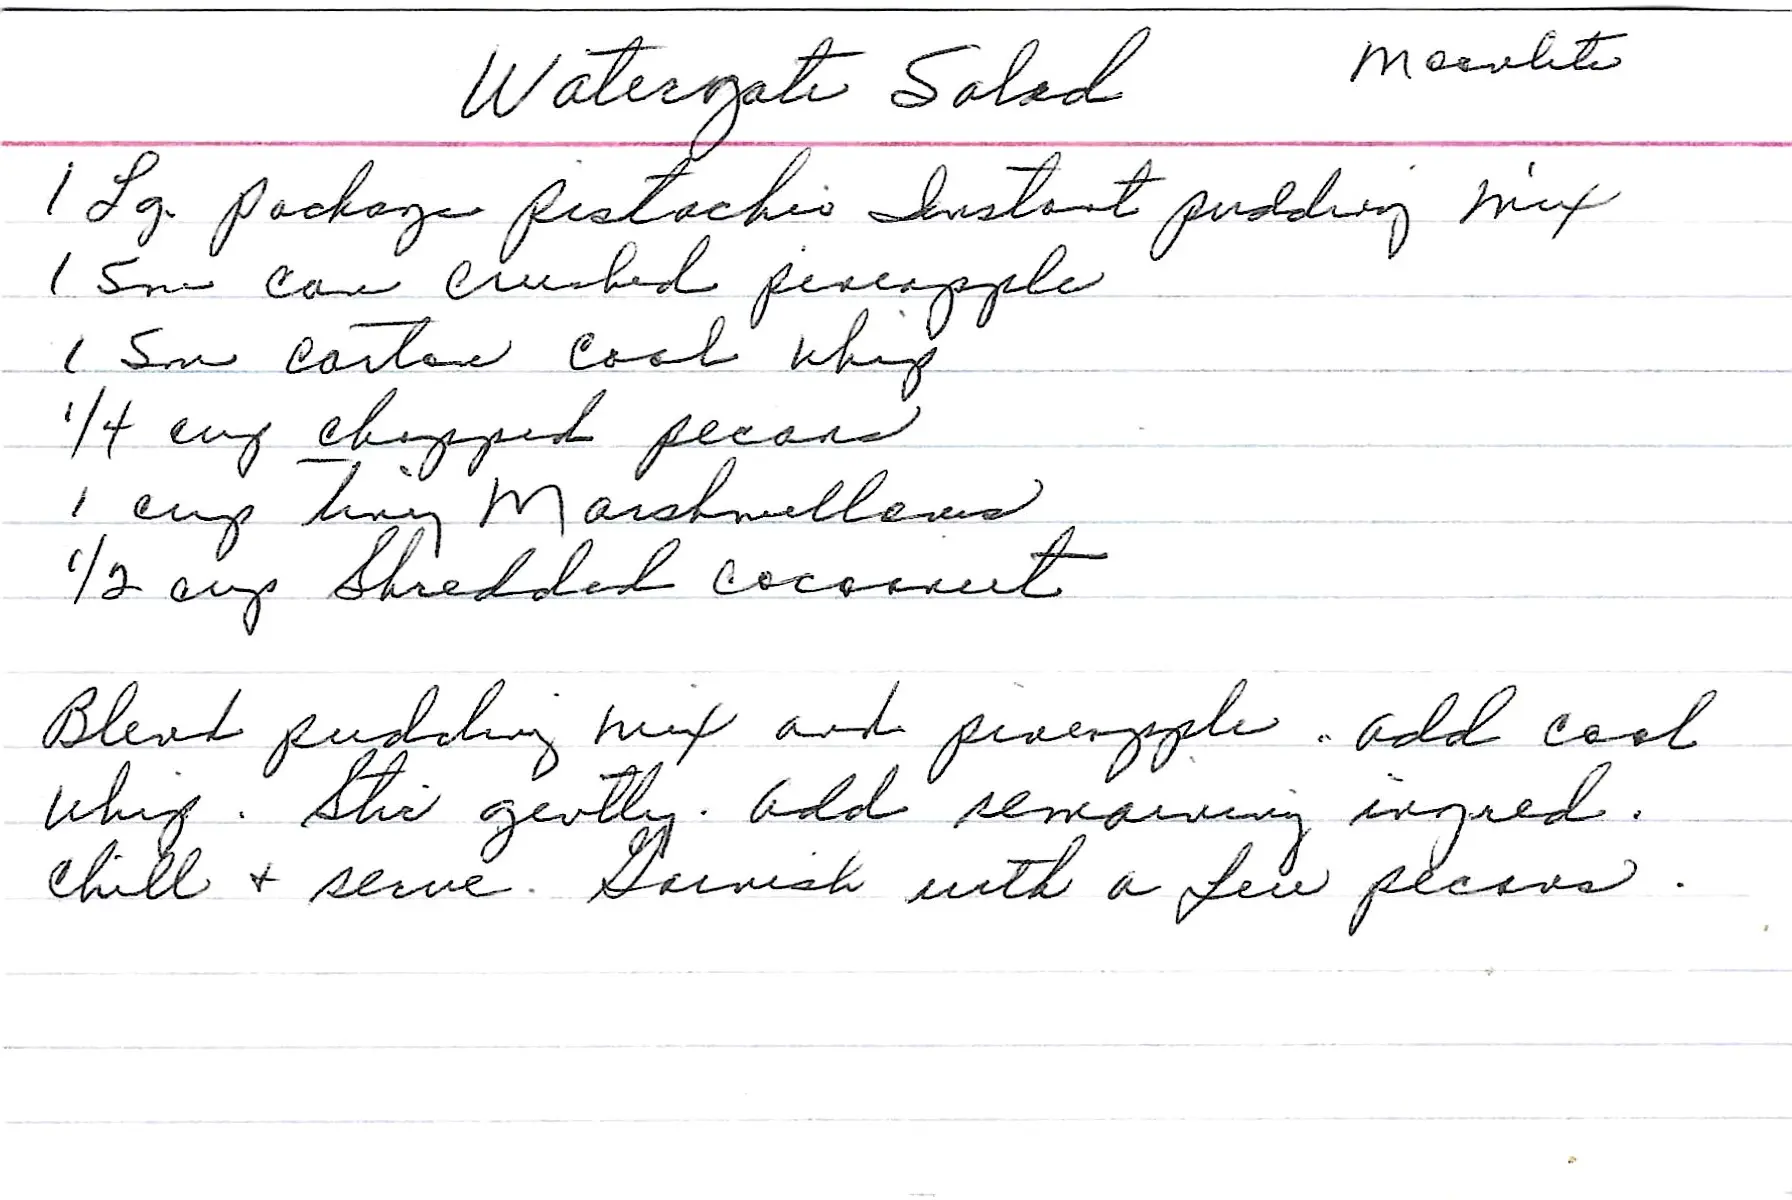 Watergate Salad
1 Lg. package pistachio Instant pudding mix
1 Sm can crushed pineapple
1 Sm carton cool whip
1/4 cup chopped pecans
1 cup tiny Marshmellows
1/2 cup Shredded coconut
Blend pudding mix and pineapple. add cool
whip. Stir gently. add remaining ingred.
chill + serve. Garnish with a few pecans.